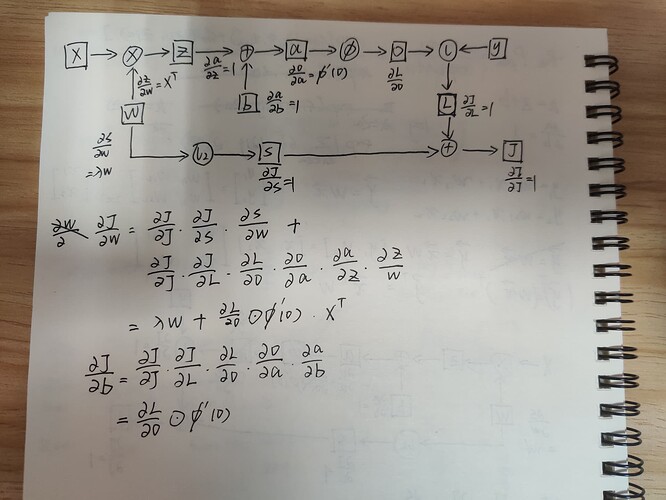 X × z + a φ o l y
∂z/∂w = X^T ∂a/∂z = 1 ∂o/∂a = φ'(o) ∂L/∂o
W b ∂a/∂b = 1 L ∂J/∂L = 1
∂s/∂w = λw l₂ s ∂J/∂s = 1 + J ∂J/∂J = 1
∂J/∂w = ∂J/∂J · ∂J/∂s · ∂s/∂w +
∂J/∂J · ∂J/∂L · ∂L/∂o · ∂o/∂a · ∂a/∂z · ∂z/w
= λw + ∂L/∂o ⊙ φ'(o) · X^T
∂J/∂b = ∂J/∂J · ∂J/∂L · ∂L/∂o · ∂o/∂a · ∂a/∂b
= ∂L/∂o ⊙ φ'(o)